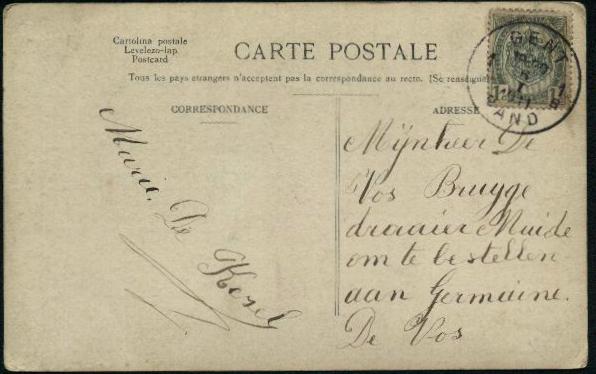 Cartolina postale
Levelezo-lap.
Postcard
CARTE POSTALE
Tous les pays etrangers n'acceptent pas la correspondance au recto. (Se renseigner
CORRESPONDANCE
ADRESSE
GENT
GAND
Marie De Kesel
Mÿnheer De
Vos Brugge
draaier Muide
om te bestellen
aan Germaine.
De Vos